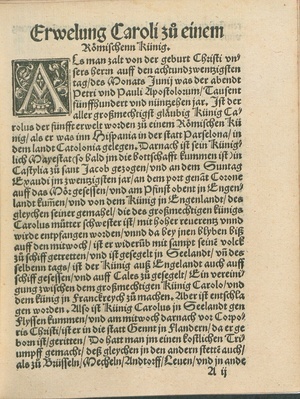 Erwelung Caroli zů einem
Römischenn Künig.
Als man zalt von der geburt Christi vn/
sers herrn auff den achtundzwentzigsten
tag/des Monats Junij was der abendt
Petri vnd Pauli Apostolorum/Tausent
fünffhundert vnd nüntzehen jar. Ist der
aller großmechtigst gläubig Künig Ca/
rolus der fünfft erwelt worden zů einem Römischen Kü/
nig/als er was im Hispania in der statt Parselona/in
dem landt Catolonia gelegen. Darnach ist sein Künig/
lich Mayestat/so bald jm die bottschafft kummen ist/in
Castylia zů sant Jacob gezogen/vnd an dem Suntag
Exaudi im zwentzigsten jar/an dem port genāt Corone
auff das Mör gesessen/vnd am Pfinst obent in Engen/
landt kum̄en/vnd von dem Künig in Engenlandt/des
gleychen seiner gemahel/die des großmechtigen künigs
Carolus můtter schwester ist/mit hoher reuerentz vnnd
wirde empfangen worden/vnd da bey jnen blyben biß
auff den mitwoch/ist er widerūb mit sampt seinē volck
zů schiff getretten/vnd ist gesegelt in Seelandt/vn̄ des
selbenn tag/ist der Künig auß Engelandt auch auff
schiff gesessen/vnd auff Cales zů gesegelt/Ein vereini
gung zwischen dem großmechtigen Künig Carolo/vnd
dem künig in Franckreych zů machen. Aber ist entschla
gen worden. Also ist Künig Carolus in Seelandt gen
Flyssen kummen/vnd am mitwoch darnach vor Corpo/
ris Christi/ist er in die statt Gennt in Flandern/da er ge
born ist/geritten/Do hatt man jm einen kostlichen Tri/
umpff gemacht/deß gleychen in den andern stettē auch/
als zů Brüsseln/Mecheln/Andtorff/Leuen/vnd in ande
A ij